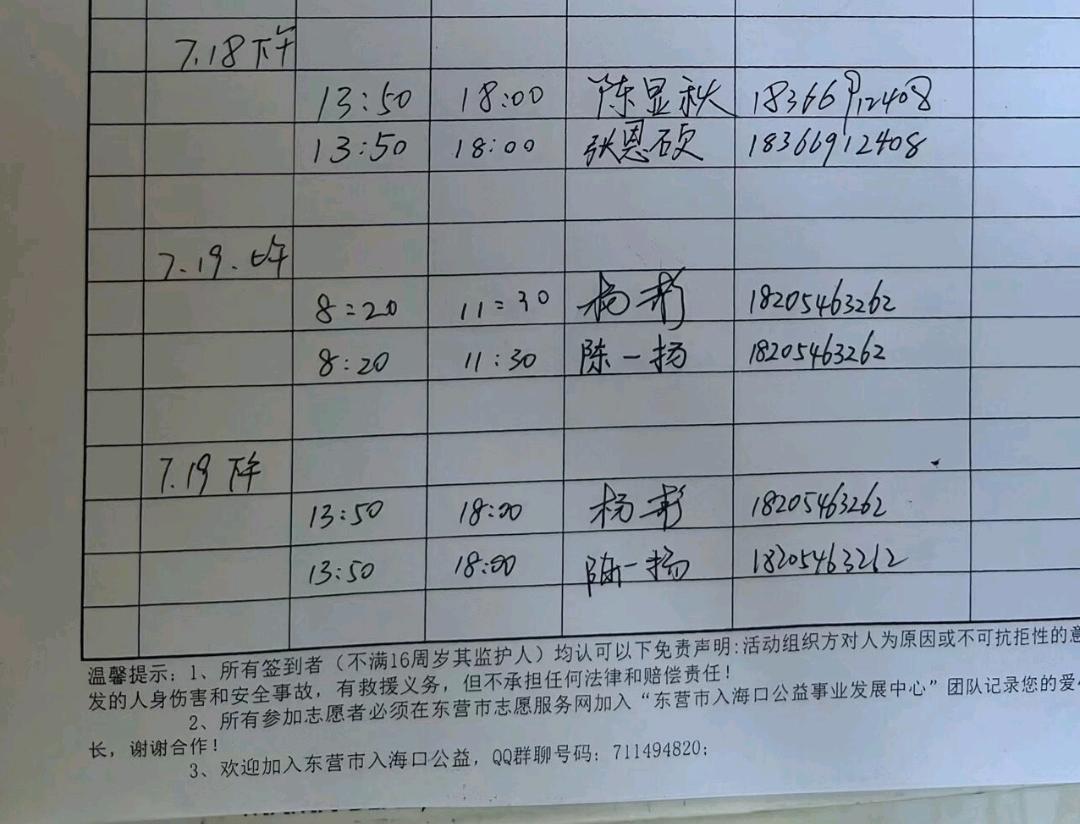 7.18下午
13:50 18:00 陈显秋 18366912408
13:50 18:00 张恩硕 18366912408
7.19.上午
8:20 11:30 杨彬 18205463262
8:20 11:30 陈一扬 18205463262
7.19下午
13:50 18:00 杨彬 18205463262
13:50 18:00 陈一扬 18205463262
温馨提示：1、所有签到者（不满16周岁其监护人）均认可以下免责声明:活动组织方对人为原因或不可抗拒性的意
发的人身伤害和安全事故，有救援义务，但不承担任何法律和赔偿责任！
2、所有参加志愿者必须在东营市志愿服务网加入“东营市入海口公益事业发展中心”团队记录您的爱心
长，谢谢合作！
3、欢迎加入东营市入海口公益，QQ群聊号码：711494820;